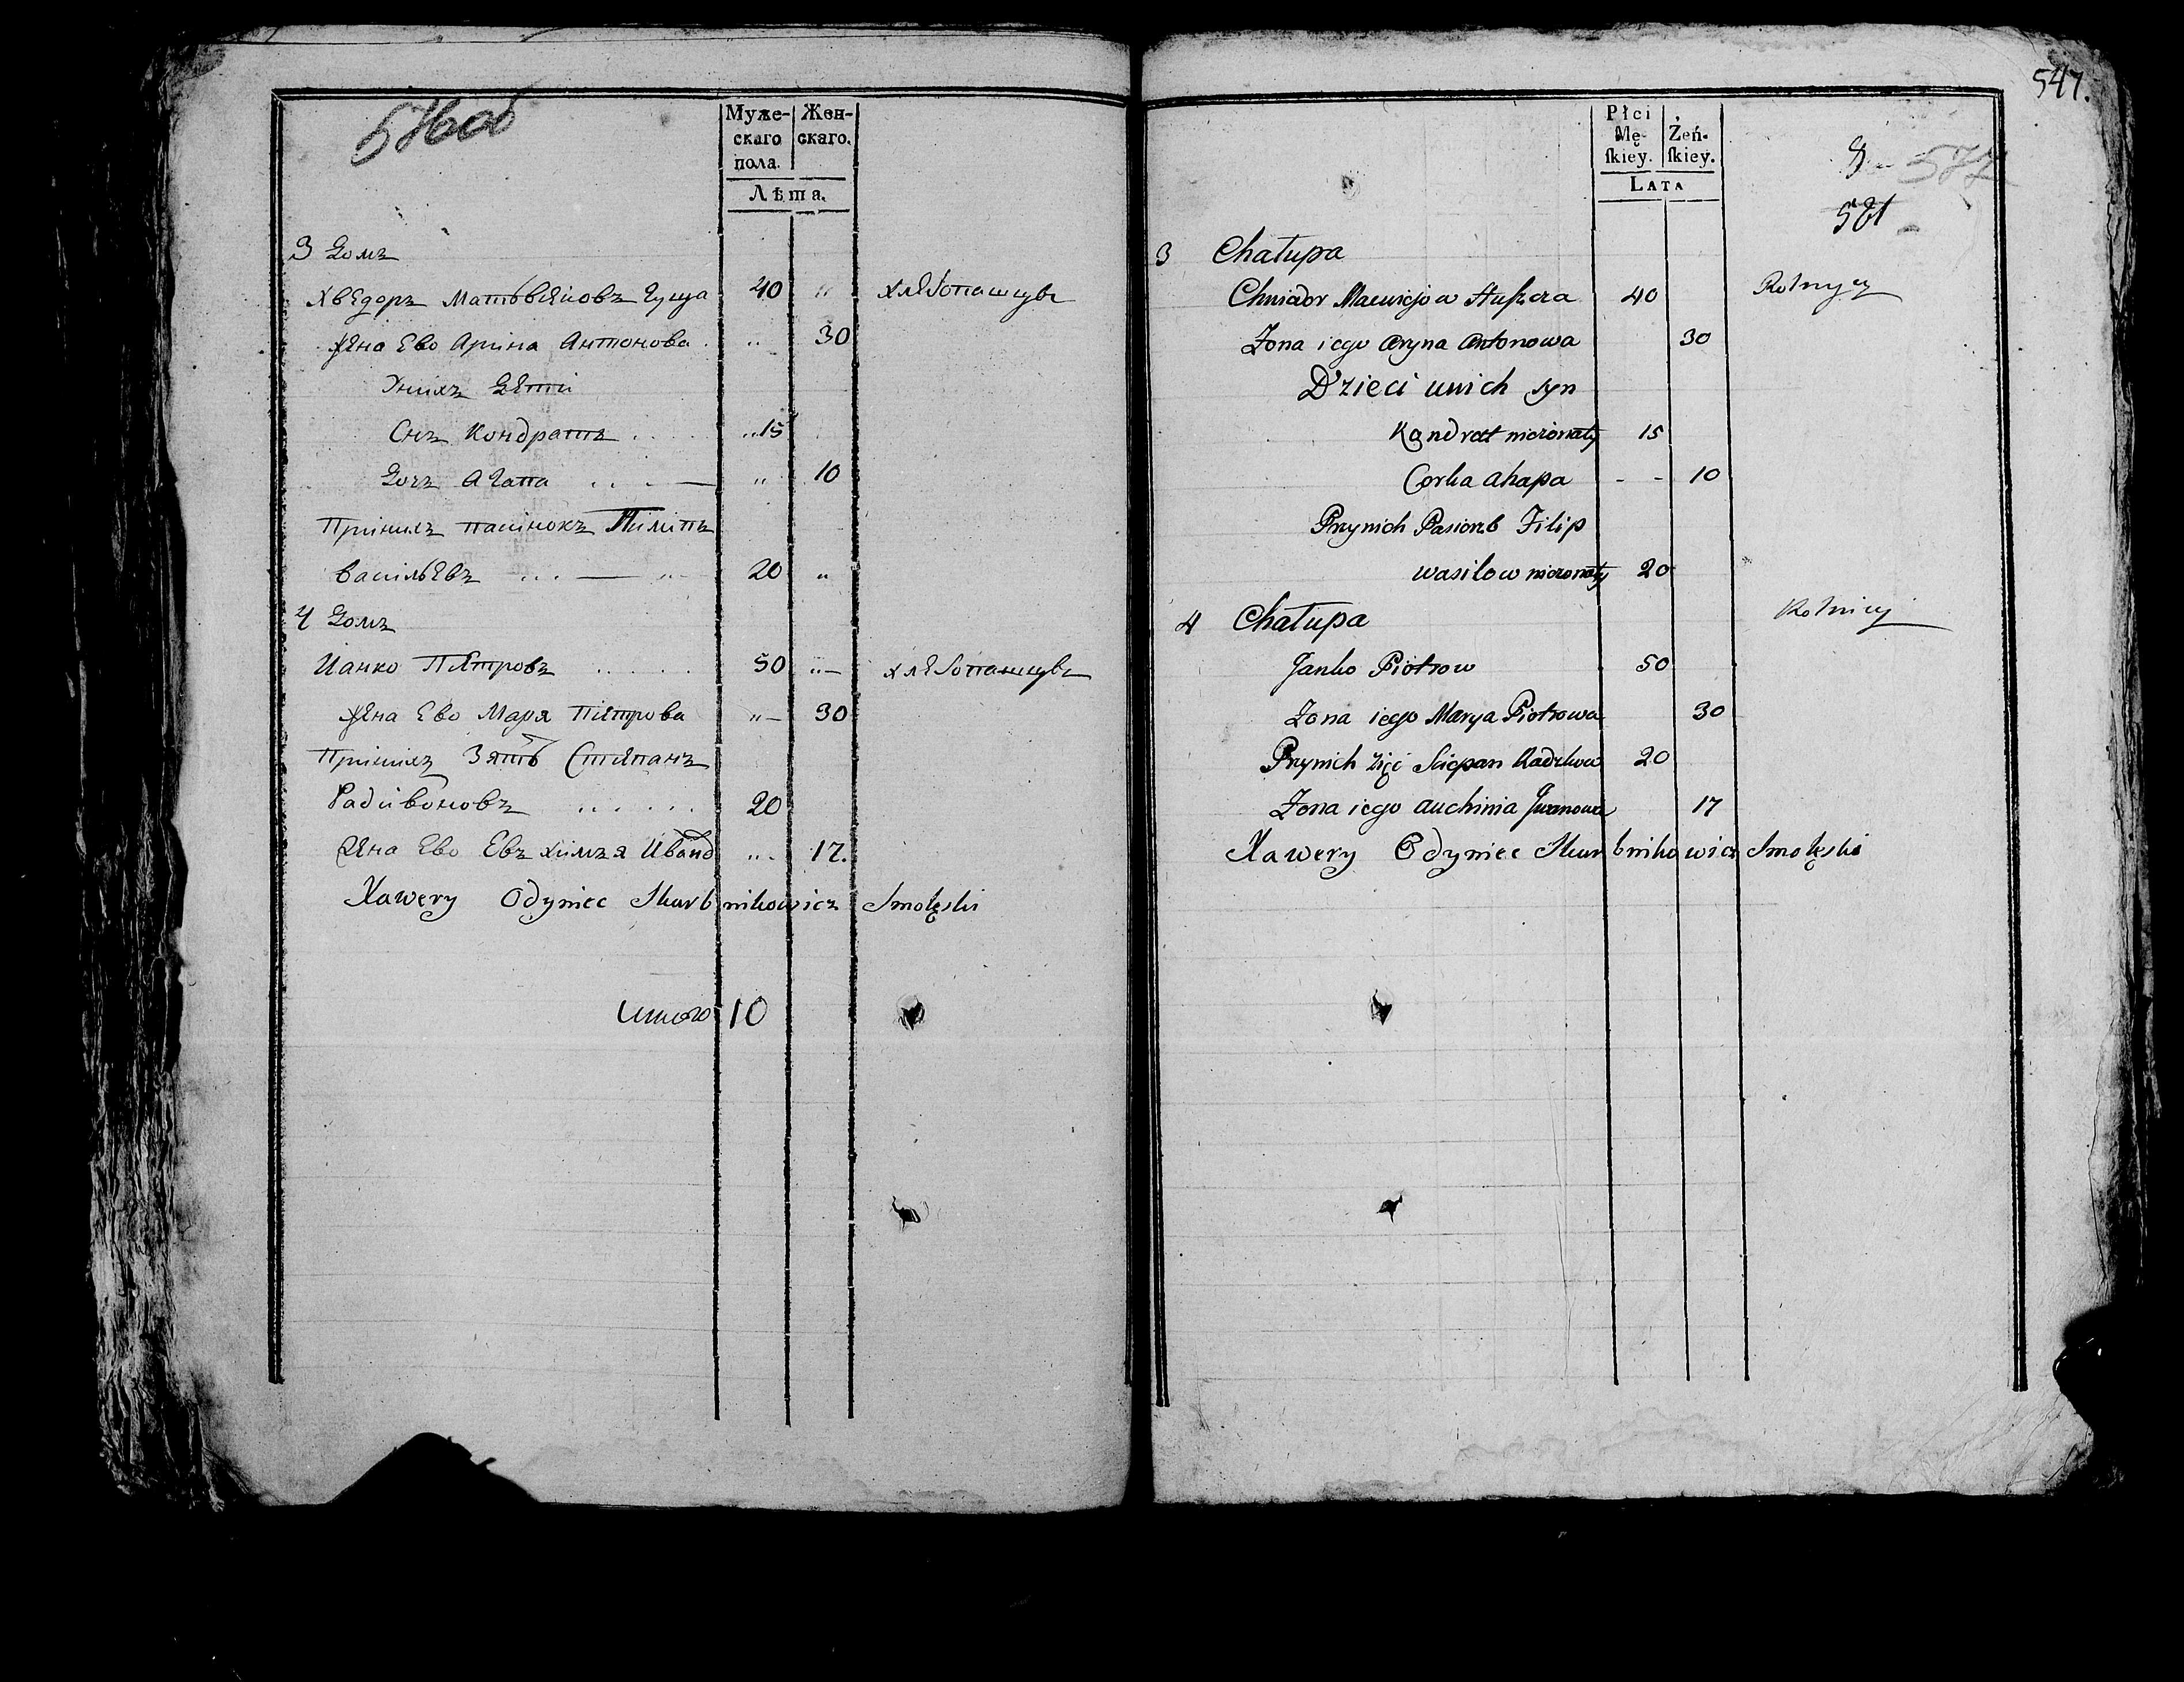 576об
Муже- Жен-
скаго скаго.
пола.
Лѣта.
3 Домъ
Хведоръ Матьвейовъ Гуща 40 " хлебопашцы
Жена Ево Арина Антонова .. 30
Унихъ Дети
Снъ Кондратъ .. 15
Дочь Агапа " 10
Принихъ пасінокъ Пиліпъ
Васильевъ 20 "
4 Домъ
Ианко Петровъ 50 " хлебопашцы
Жена Ево Маря Петрова " 30
Принихъ Зять Степанъ
Радивоновъ 20
Жена Ево Евъхимъя Иванo " 17.
Xawery Odyniec Skarbnikowicz Smoleski
Итого 10
547.
Płci
Mę- Żeń-
skiey. skiey.
LATA
577
581
3 Chałupa
Chwiador Maciwiejow Huszcza 40 Rolnycy
Żona iego Aryna Antonowa 30
Dzieci unich syn
Kandrat nieżonaty 15
Corka ahapa - - 10
Przynich Pasierzb Filip
wasilow nieżonaty 20
4 Chałupa Rolnicy
Janko Piotrow 50
Żona iego Marya Piotrowa 30
Przynich Zięć Sciepan Radziwo 20
Żona iego auchimia Jwanowa 17
Xawery Odyniec Skarbnikowicz Smoleski